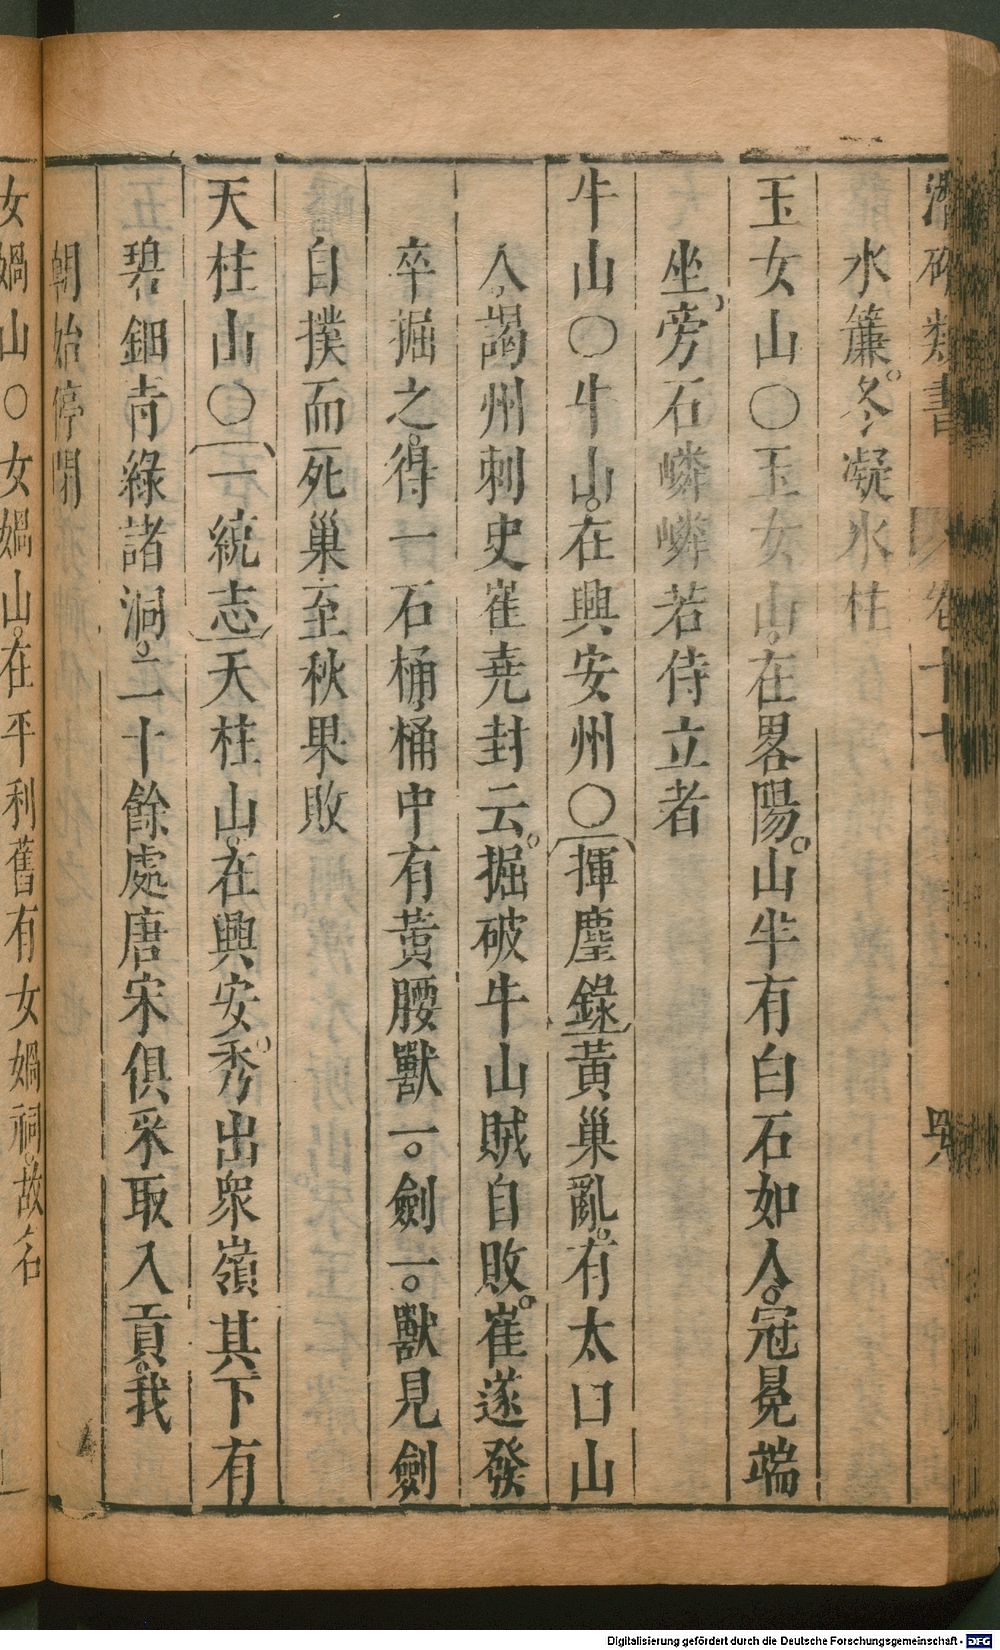 潛確類書 卷十七
水簾冬凝氷柱
玉女山〇玉女山在畧陽山半有白石如人冠冕端
坐旁石嶙嶙若侍立者
牛山〇牛山在興安州〇揮麈錄黃巢亂有太白山
人謁州刺史崔堯封云掘破牛山賊自敗崔遂發
卒掘之得一石桶桶中有黃腰獸一劍一獸見劍
自撲而死巢至秋果敗
天柱山〇一統志天柱山在興安秀出衆嶺其下有
碧鈿靑綠諸洞二十餘處唐宋俱采取入貢我
朝始停閉
女媧山〇女媧山在平利舊有女媧祠故名
Digitalisierung gefördert durch die Deutsche Forschungsgemeinschaft - DFG